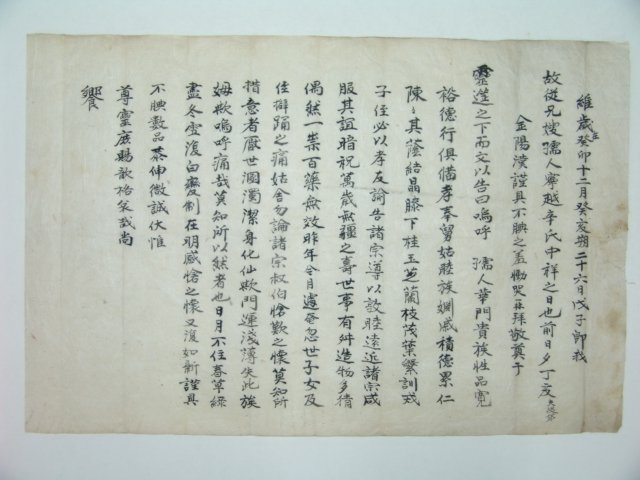 維歲次癸卯十二月癸亥朔二十六月戊子卽我
故從兄嫂孺人寧越辛氏中祥之日也前日夕丁亥
金陽濮謹具不腆之羞慟哭再拜敬奠于
靈筵之下而文以告曰嗚呼 孺人華門貴族性品寬
裕德行俱備孝奉舅姑睦族婣戚積德累仁
陳〻其蔭結晶膝下桂玉芝蘭枝茂葉繁訓戒
子侄必以孝友諭告諸宗導以敦睦遠近諸宗咸
服其誼暗祝萬歲無疆之壽世事有舛造物多猜
偶然一祟百藥無效昨年今月遽爾忽世子女及
侄擗踊之痛姑舍勿論諸宗叔伯愴歎之懷莫知所
措意者厭世溷濁潔身化仙歟門運淺薄失此族
姆歟嗚呼痛哉莫知所以然者也日月不住春草綠
盡冬雪復白變制在明感愴之懷又復如新謹具
不腆數品恭伸微誠伏惟
尊靈庶賜歆格哀哉尚
饗